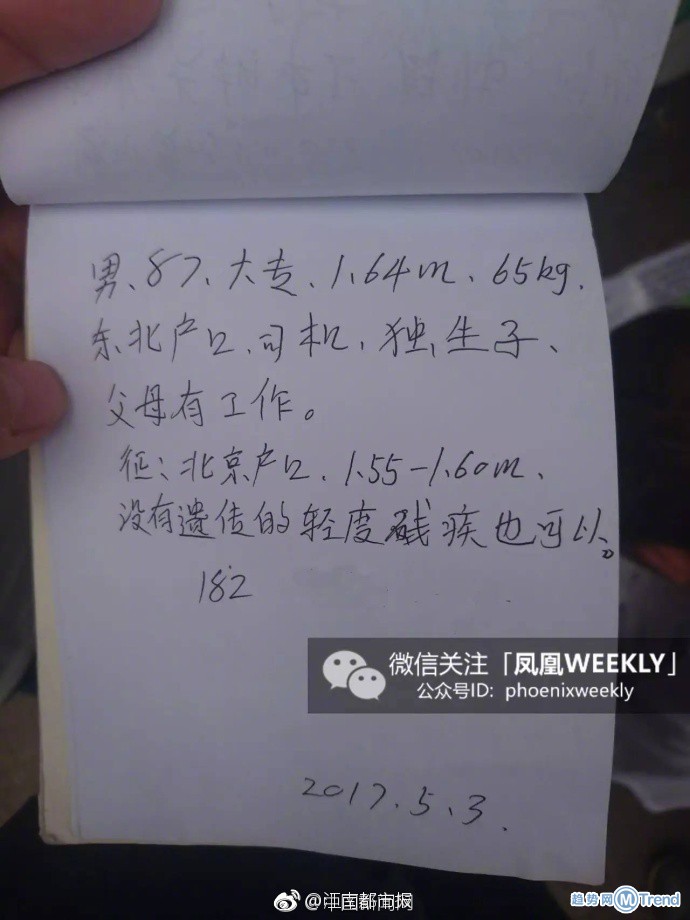 男、87、大专、1.64m、65kg.
东北户口、司机、独生子、
父母有工作。
征：北京户口、1.55-1.60m、
没有遗传的轻度残疾也可以。
182
微信关注「凤凰WEEKLY」
公众号ID: phoenixweekly
2017.5.3.
@江南都市报
趋势网 M Trend